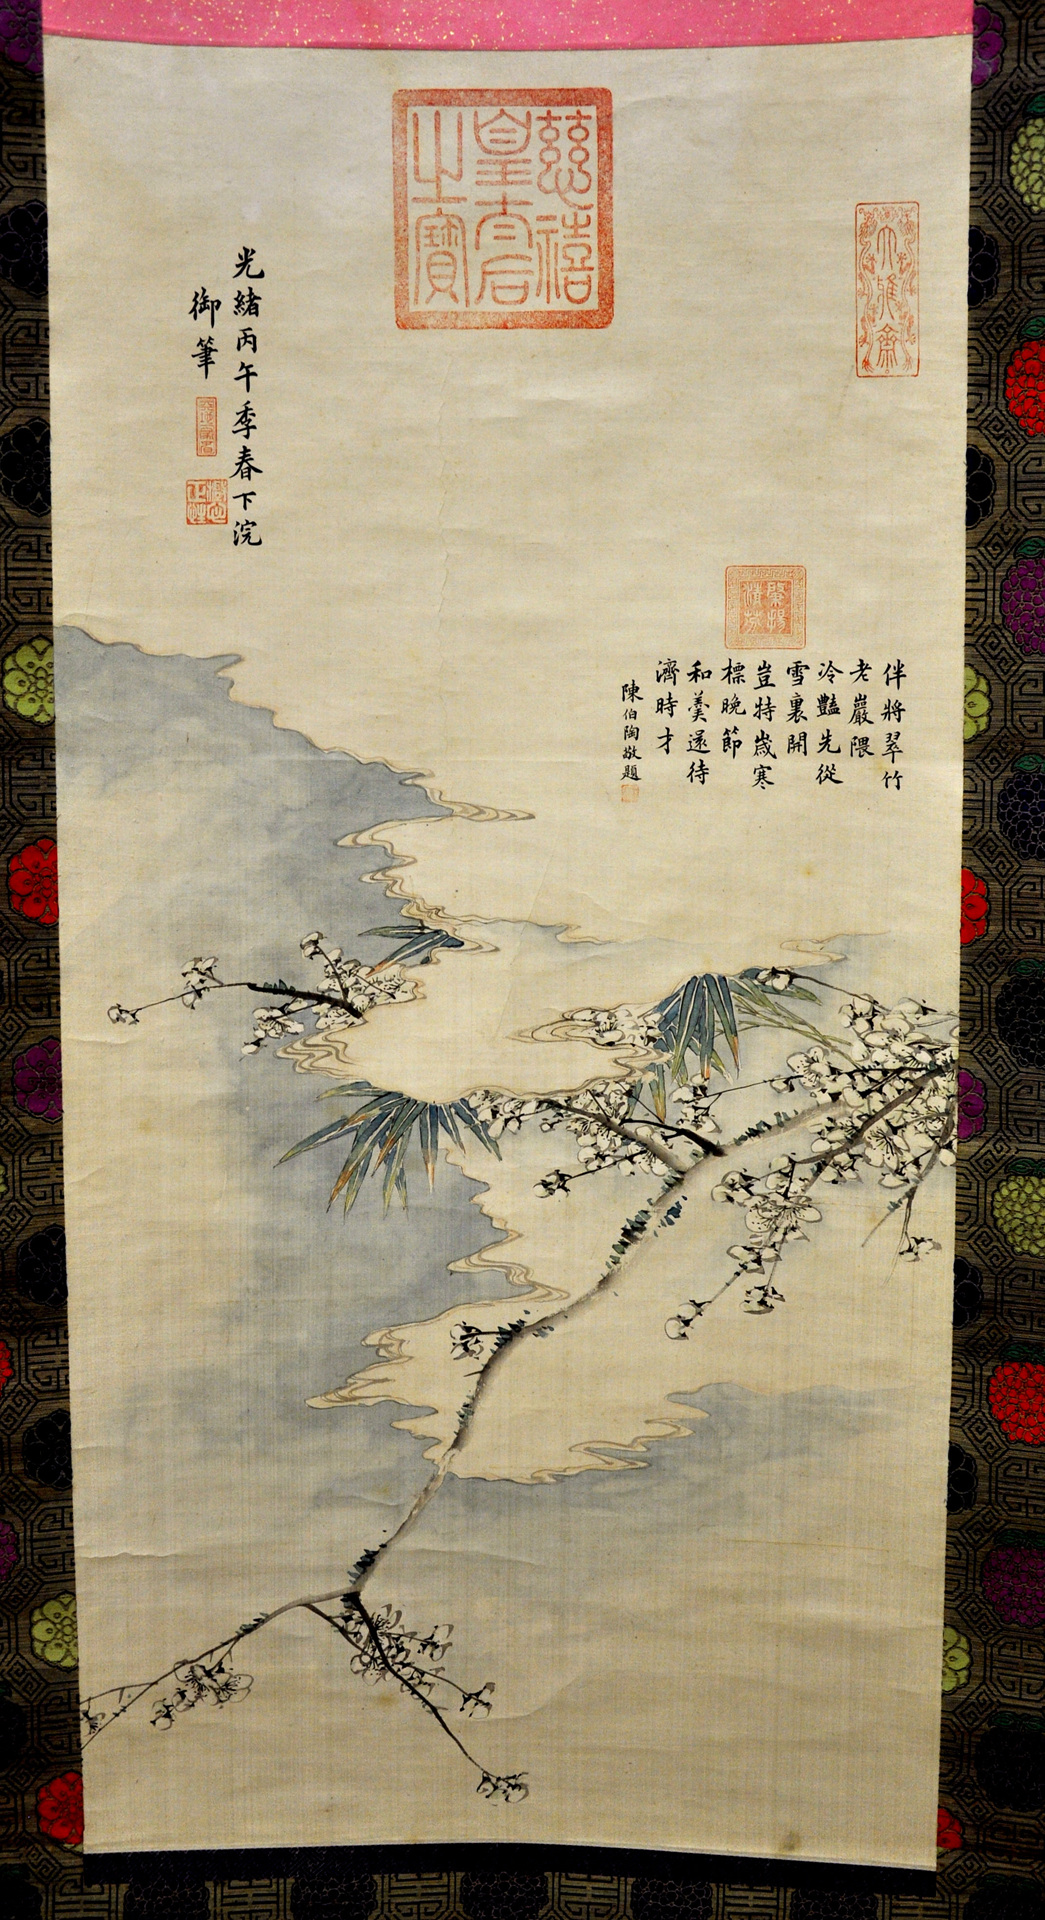 大雅齋
慈禧
皇太后
之寶
伴將翠竹
老巖隈
冷豔先從
雪裏開
豈特歲寒
標晚節
和羹還待
濟時才
陳伯陶敬題
光緒丙午季春下浣
御筆